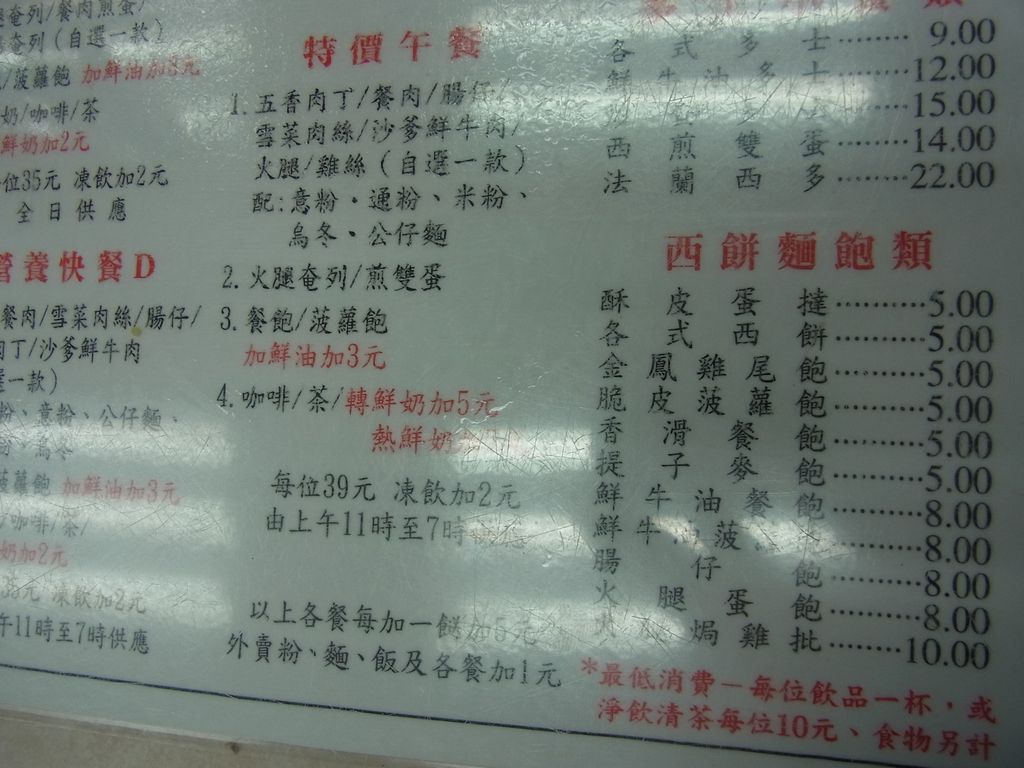 奄列/餐肉煎蛋/
奄列(自選一款)
/菠蘿飽 加鮮油加3元
奶/咖啡/茶
鮮奶加2元
位35元 凍飲加2元
全日供應
營養快餐D
餐肉/雪菜肉絲/腸仔/
肉丁/沙爹鮮牛肉
選一款)
粉、意粉、公仔麵、
粉、烏冬
菠蘿飽 加鮮油加3元
/咖啡/茶/
奶加2元
35元 凍飲加2元
午11時至7時供應
特價午餐
1. 五香肉丁/餐肉/腸仔/
雪菜肉絲/沙爹鮮牛肉/
火腿/雞絲(自選一款)
配:意粉・通粉、米粉、
烏冬・公仔麵
2. 火腿奄列/煎雙蛋
3. 餐飽/菠蘿飽
加鮮油加3元
4. 咖啡/茶/轉鮮奶加5元
熱鮮奶
每位39元 凍飲加2元
由上午11時至7時
以上各餐每加一餸加5元
外賣粉、麵、飯及各餐加1元
各式多士………9.00
鮮牛油多士………12.00
多………15.00
西煎雙蛋………14.00
法蘭西多………22.00
西餅麵飽類
酥皮蛋撻………5.00
各式西餅………5.00
金鳳雞尾飽………5.00
脆皮菠蘿飽………5.00
香滑餐飽………5.00
提子麥飽………5.00
鮮牛油餐飽………8.00
鮮牛油菠………8.00
腸仔飽………8.00
火腿蛋飽………8.00
焗雞批………10.00
*最低消費－每位飲品一杯，或
淨飲清茶每位10元、食物另計